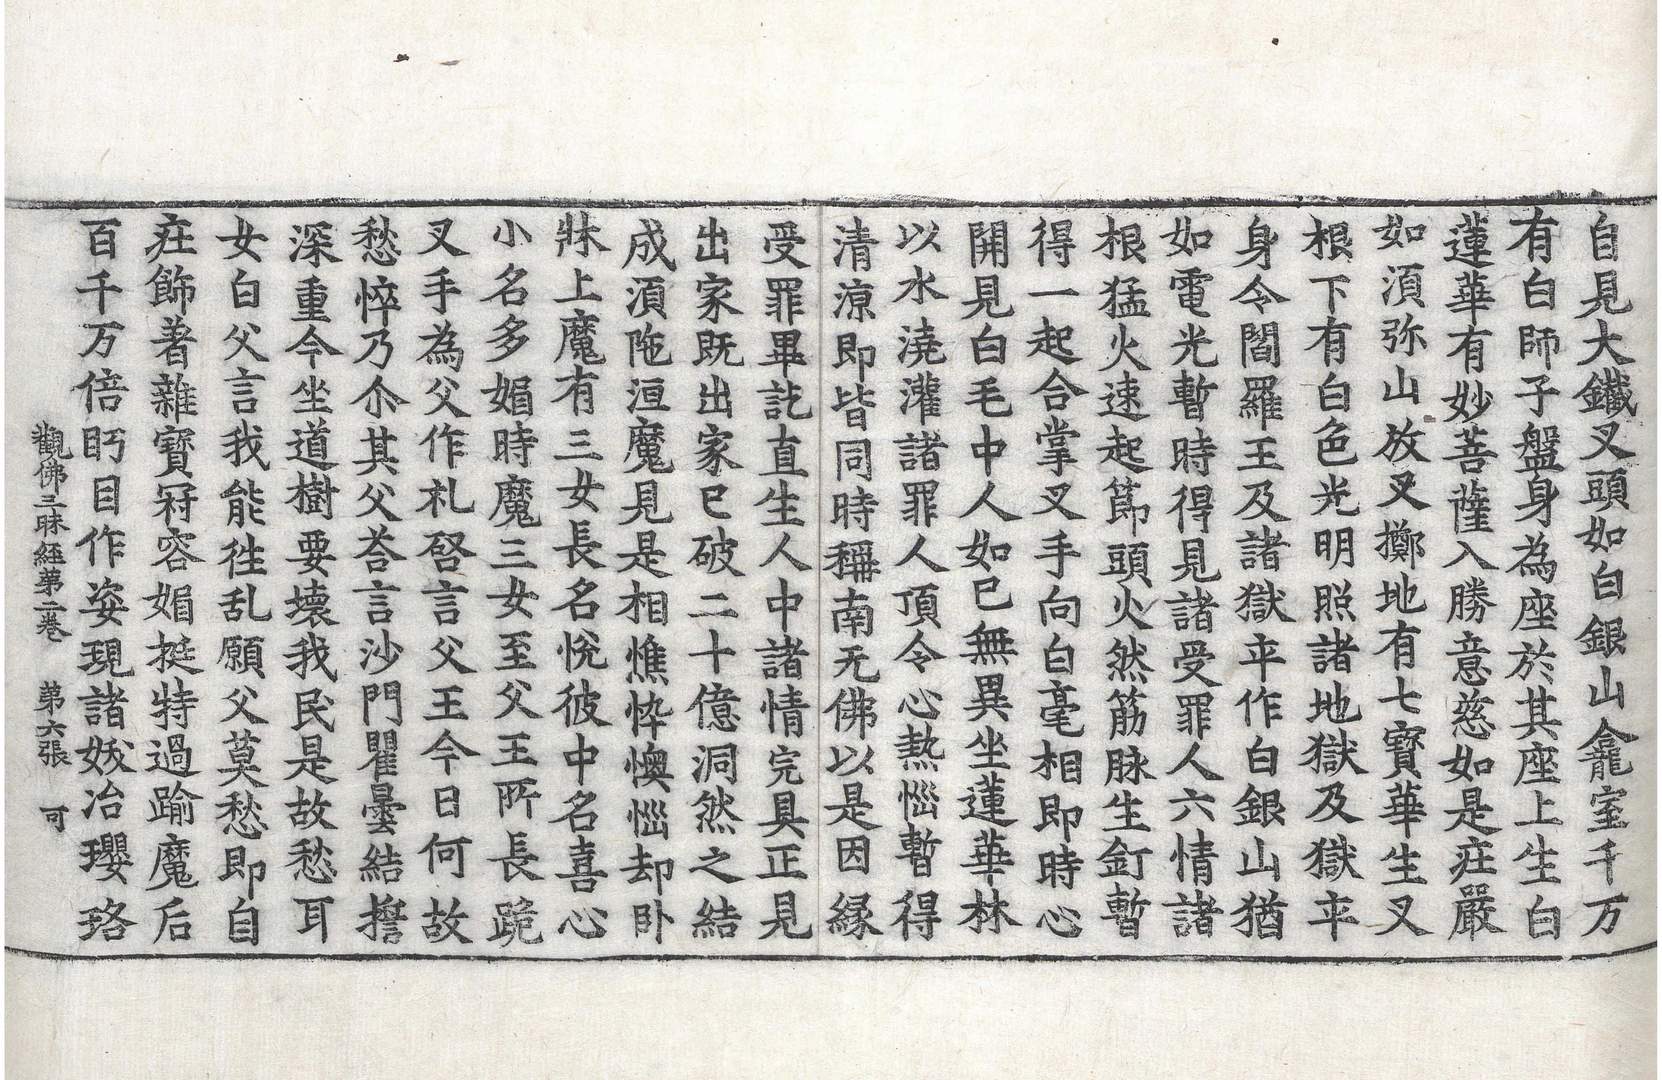 自見大鑯叉頭如白銀山龕室千万
有白師子盤身為座於其座上生白
蓮華有妙菩薩入勝意慈如是疘嚴
如湏弥山放叉擲地有七寶華生叉
根下有白色光明照諸地獄及獄卒
身令閻羅王及諸獄卒作白銀山猶
如電光暫時得見諸受罪人六情諸
根猛火速起莭頭火然筋脉生釘暫
得一起合掌叉手向白毫相即時心
開見白毛中人如已無異坐蓮華林
以水澆灌諸罪人頂令心熱惱暫得
清涼即皆同時稱南无佛以是因緣
受罪畢訖直生人中諸情完具正見
出家既出家已破二十億洞然之結
成湏陁洹魔見是相憔悴懊惱却卧
牀上魔有三女長名悅彼中名喜心
小名多媚時魔三女至父王所長跪
叉手為父作礼啓言父王今日何故
愁悴乃尒其父荅言沙門瞿曇結誓
深重今坐道樹要壞我民是故愁耳
女白父言我能徃乱願父莫愁即自
疘飾著雜寶冠容媚挺特過踰魔后
百千万倍眄目作姿現諸妖冶瓔珞
觀佛三昧經第二卷　第六張　可